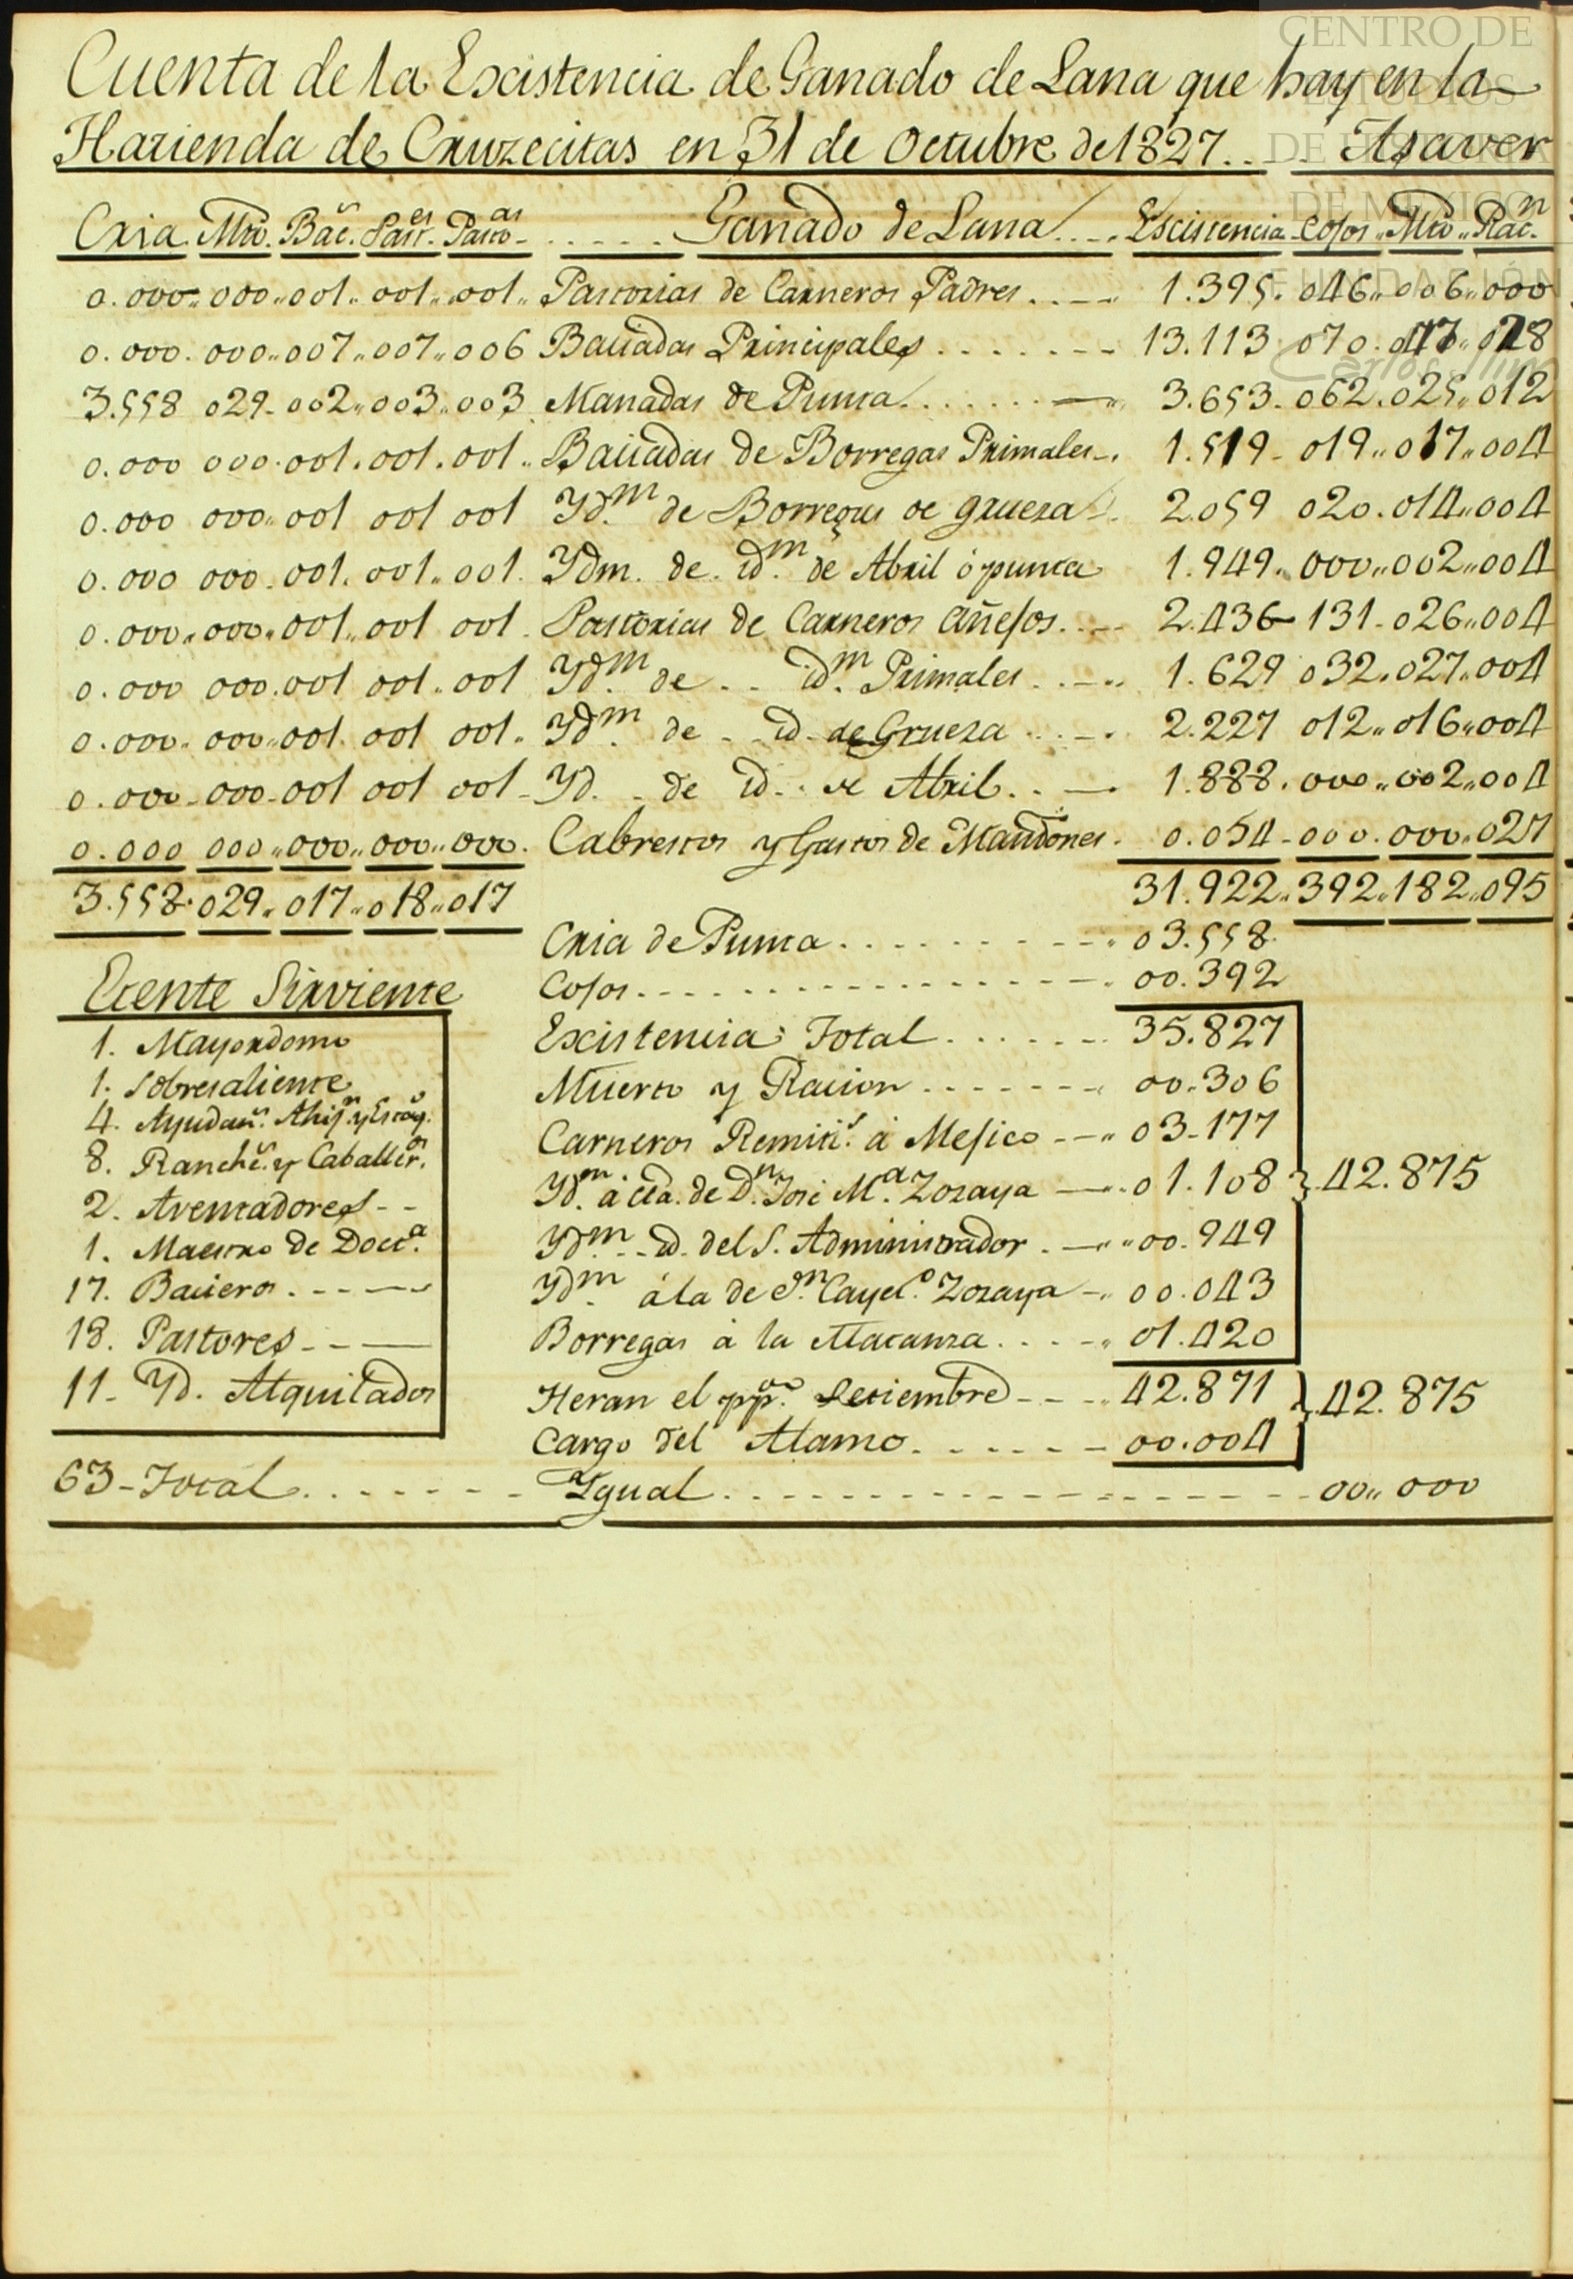 Cuenta de la Escistencia de Ganado de Lana que hay en la
Hazienda de Cruzecitas en 31 de Octubre de 1827. . . Asaver
Cria Mto. Bac.s Past.es Pasto.as . . . . . Ganado de Lana . . . . Escistencia Cojos Mto Rac.n
0.000 000 001 001 001 Pastorias de Carneros Padres . . . 1.395 046 006 000
0.000 000 007 007 006 Baciadas Principales . . . . . . . 13.113 070 047 028
3.558 029 002 003 003 Manadas de Punta . . . . . . 3.653 062 025 012
0.000 000 001 001 001 Baciadas de Borregas Primales 1.519 019 017 004
0.000 000 001 001 001 Yd.m de Borregas de grueza 2.059 020 014 004
0.000 000 001 001 001 Ydm. de id.m de Abril ó punta 1.949 000 002 004
0.000 000 001 001 001 Pastorias de Carneros Añejos . . . 2.436 131 026 004
0.000 000 001 001 001 Yd.m de . . id.m Primales . . . 1.629 032 027 004
0.000 000 001 001 001 Yd.m de . id de Grueza . . . 2.227 012 016 004
0.000 000 001 001 001 Yd. de id. de Abril . . 1.888 000 002 004
0.000 000 000 000 000 Cabrestos y Gastos de Mandones 0.054 000 000 027
3.558 029 017 018 017 31.922 392 182 095
Cria de Punta . . . . . . . . . 03.558
Cojos . . . . . . . . . . . . . 00.392
Existencia Total . . . . . . . 35.827
Muerto y Racion . . . . . . . 00.306
Carneros Remiti.s á Mejico 03.177
Yd.m á cta. de D.n José M.a Zozaya 01.108 42.875
Ydm id. del S. Administrador 00.949
Yd.m á la de D.n Cayet.o Zozaya 00.043
Borregas á la Matanza . . . . 01.420
Heran el pp.do Setiembre 42.871 42.875
Cargo del Alamo . . . . . . 00.004
Ygual . . . . . . . . . . . . . . . 00 000
Gente Sirviente
1. Mayordomo
1. Sobresaliente
4. Ayudan.s Ahij.n y Escog.
8. Ranche.s y Caballer.os
2. Aventadores
1. Maestro de Doct.a
17. Bacieros . . . .
18. Pastores
11. Yd. Alquilados
63 Total . . . . . . .
CENTRO DE
ESTUDIOS
DE HISTORIA
DE MEXICO
FUNDACIÓN
Carlos Slim